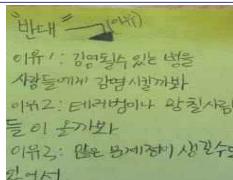 "반대" (이유)
이유1: 감염될수 있는 병을
사람들에게 감염시킬까봐
이유2: 테러범이나 사람
들이 올까봐
이유3: 많은 문제점이 생길수도
있어서